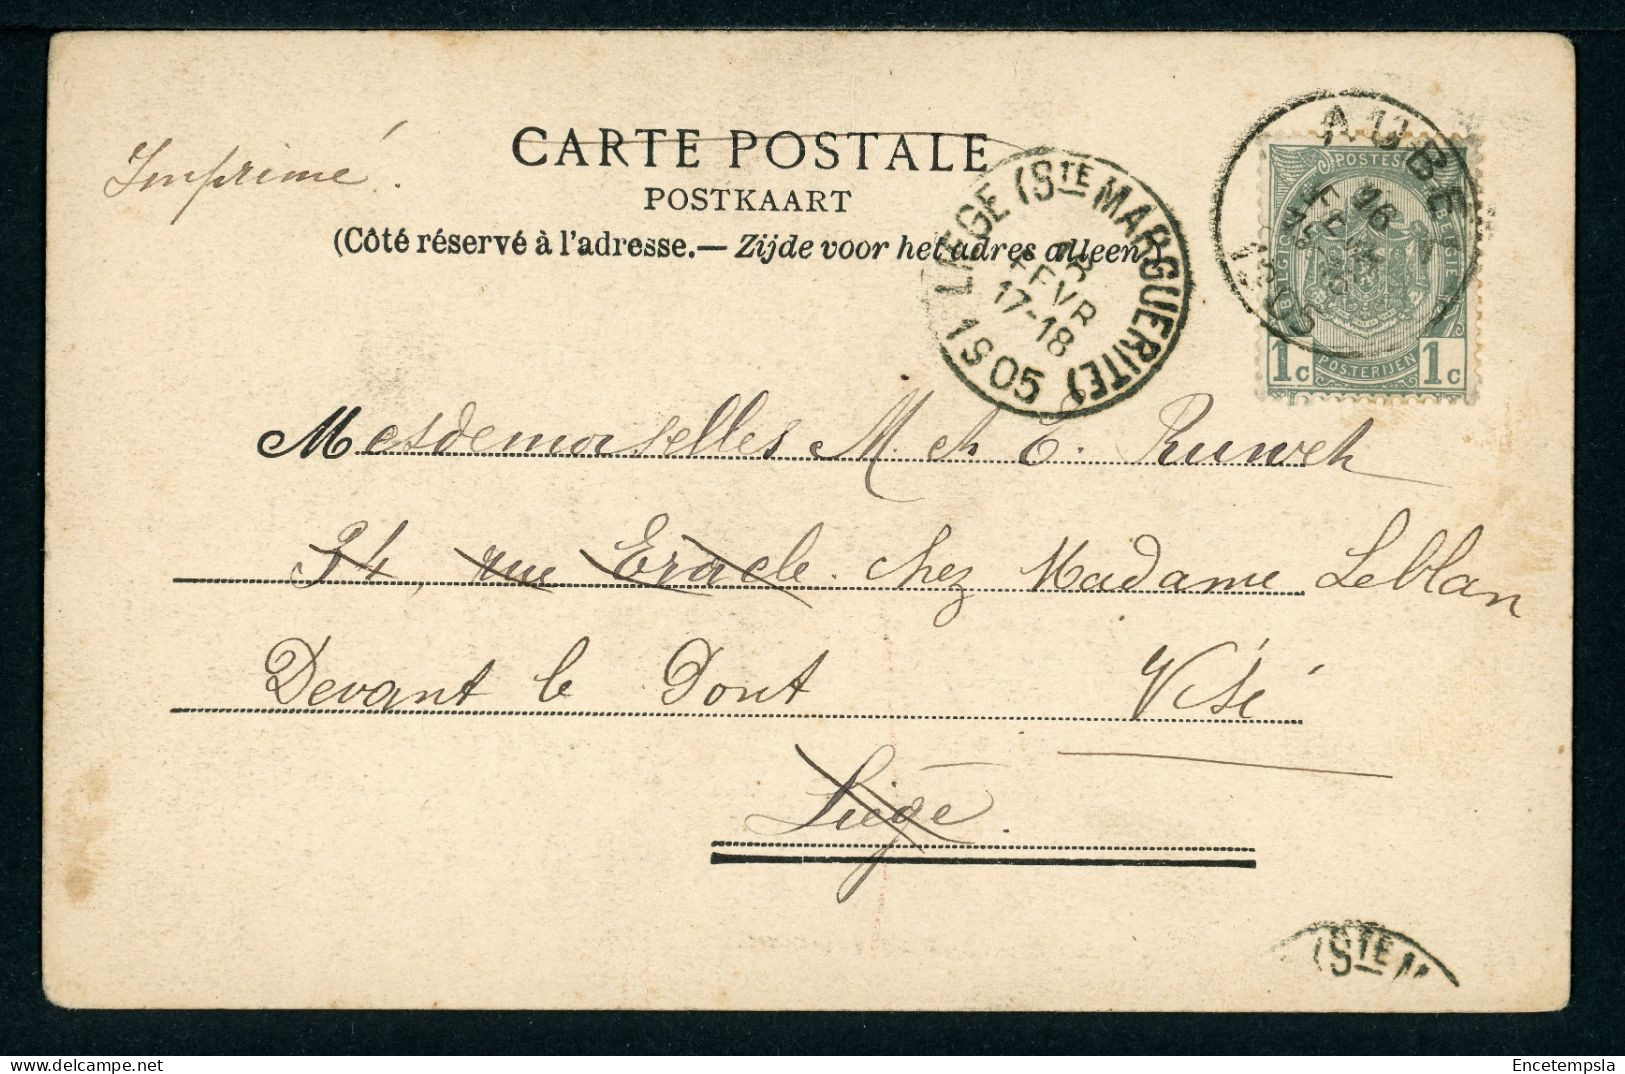 Imprimé.
CARTE POSTALE
POSTKAART
(Côté réservé à l'adresse.— Zijde voor het adres alleen)
LIEGE (STE MARGUERITE)
FEVR
17-18
1905
AUBEL
POSTES
BELGIQUE
BELGIE
1c POSTERIJEN 1c
Mesdemoiselles M. et E. Ruwet
34, rue Eracle. chez Madame Leblan
Devant le Pont Visé
Liége.
(STE M
Encetempsla